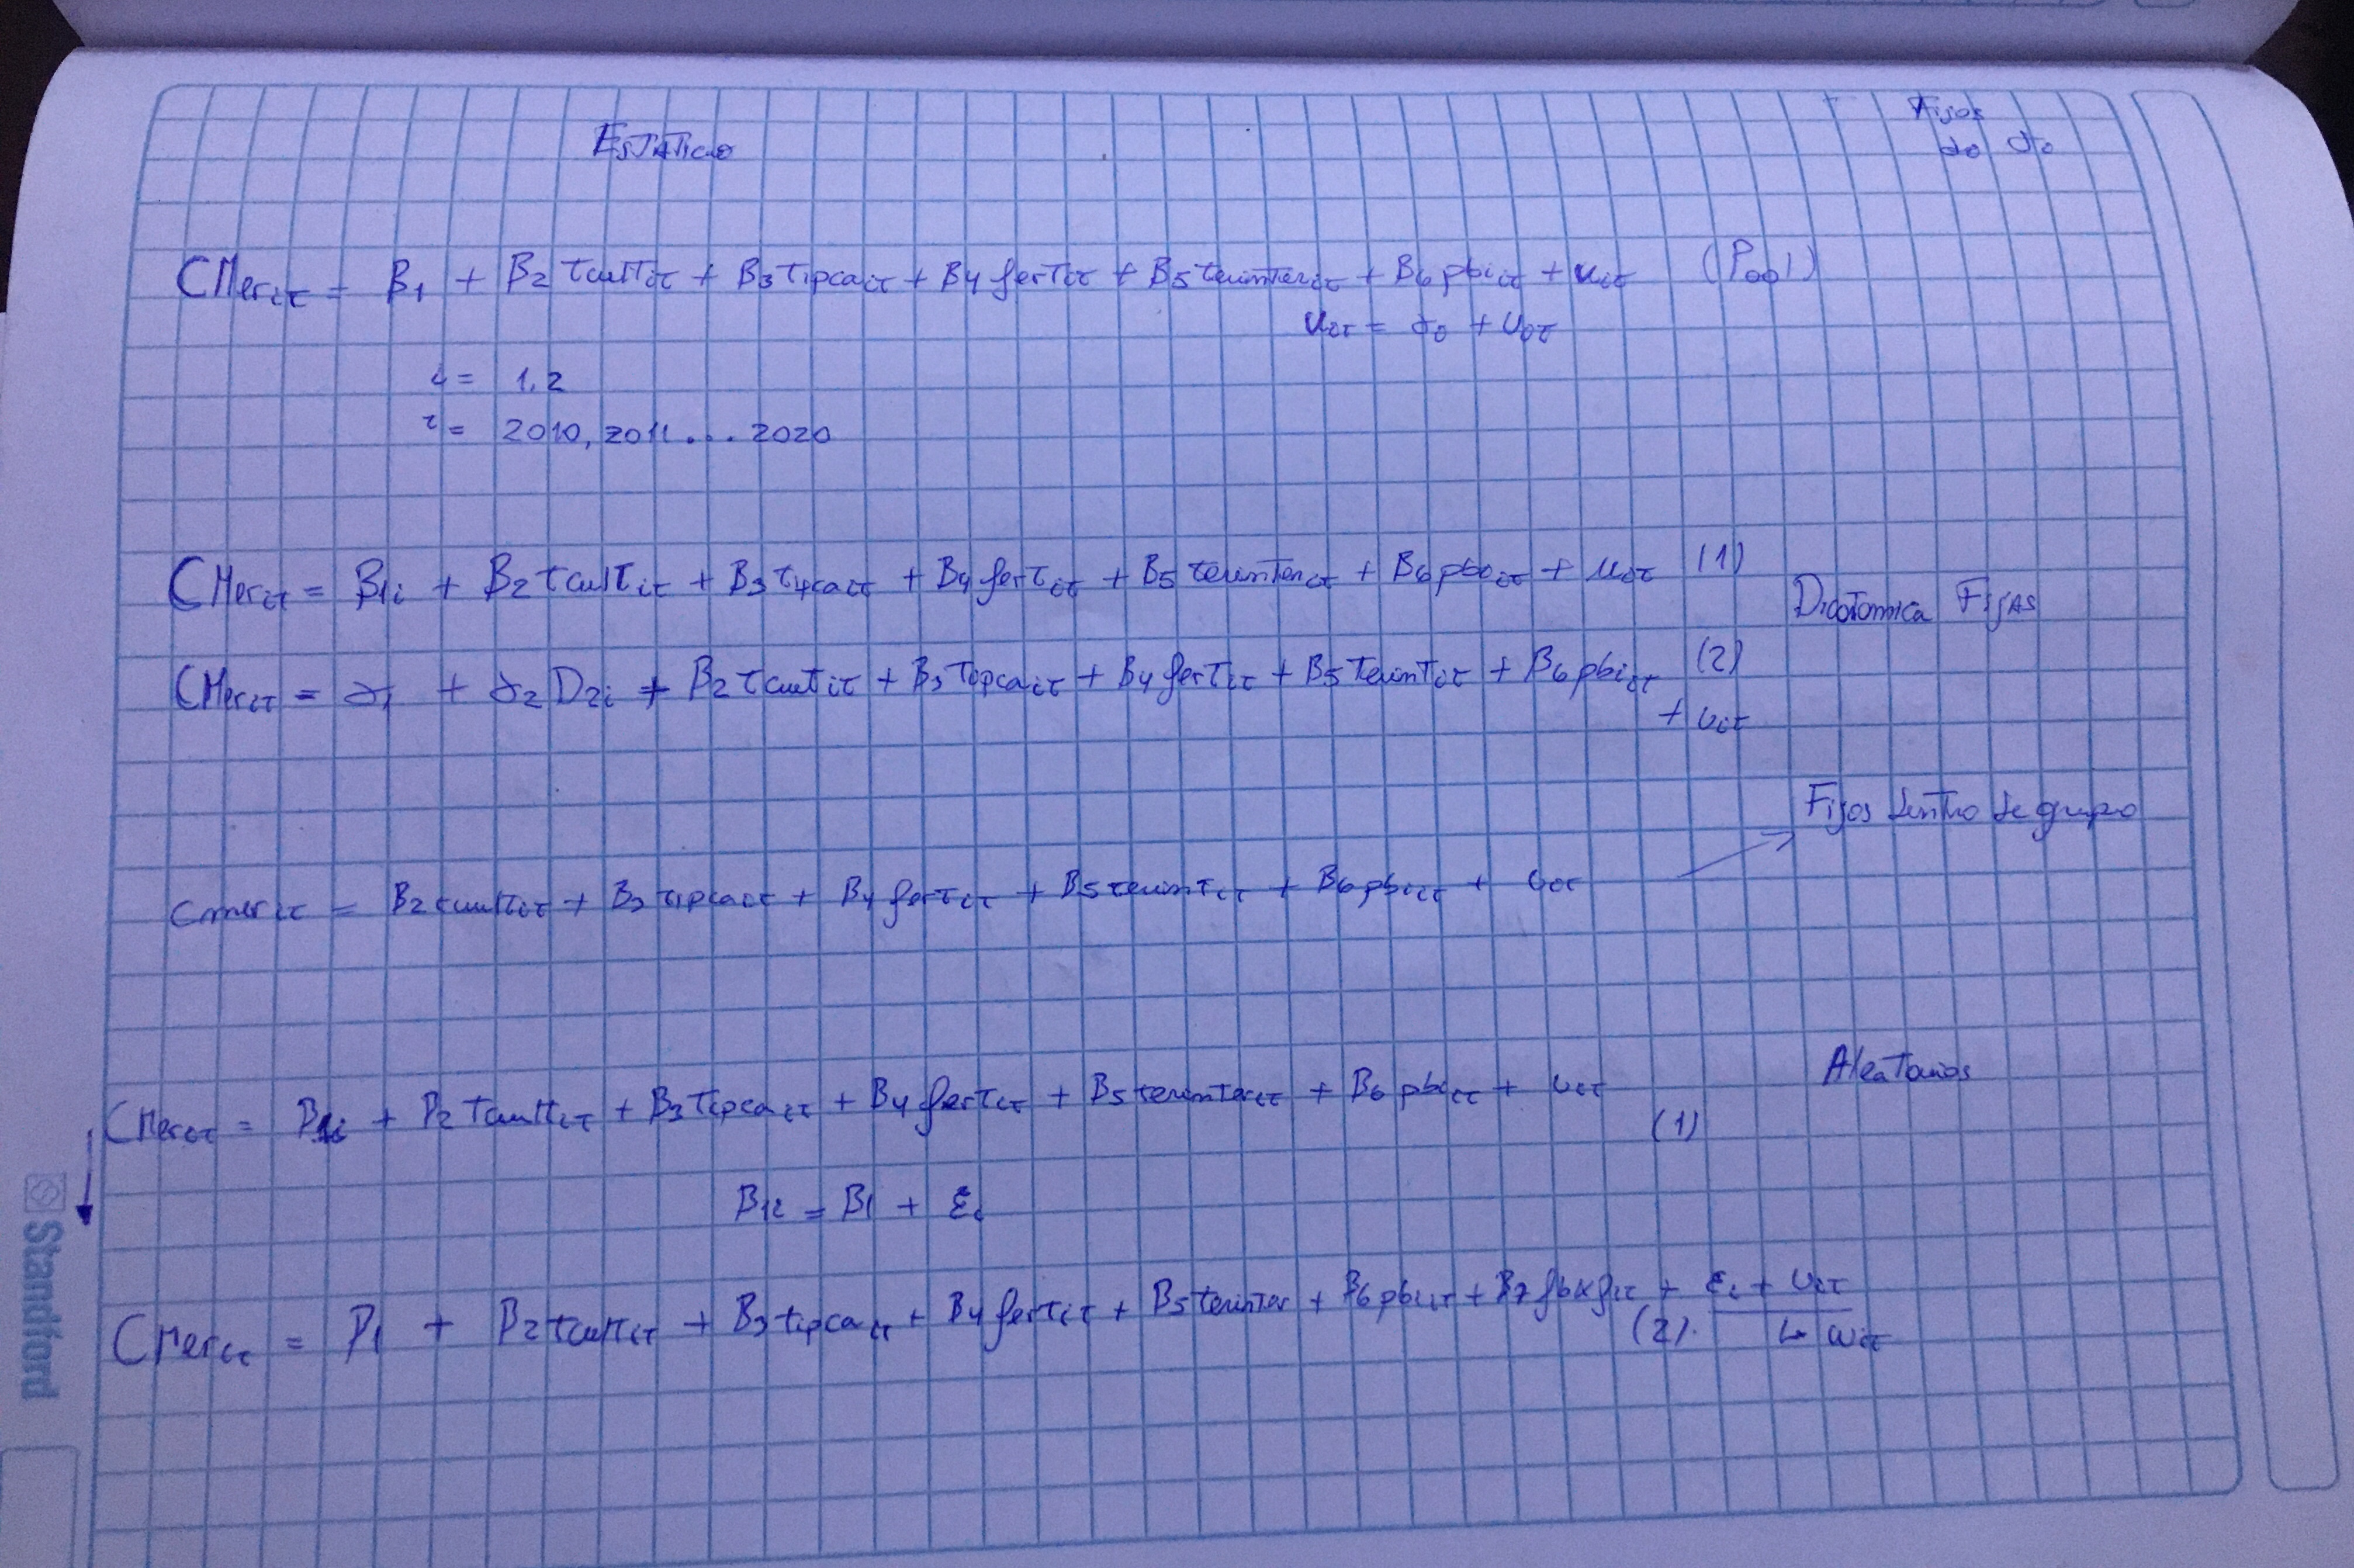 Fijos
Estatico
CMerit = B1 + B2 tcultit + B3 tipcait + B4 fertit + B5 terinterit + B6 pbiit + uit (Pool)
i = 1,2
t = 2010, 2011 ... 2020
CMerit = B1i + B2 tcultit + B3 tipcait + B4 fertit + B5 terinterit + B6 pbiit + uit (1)
Dicotomica Fijas
CMerit = α1 + α2 D2i + B2 tcultit + B3 tipcait + B4 fertit + B5 terintit + B6 pbiit (2)
+ uit
Fijos dentro de grupo
cmerit = B2 tcultit + B3 tipcait + B4 fertit + B5 terintit + B6 pbiit + uit
Aleatorios
CMerit = B1i + B2 tcultit + B3 tipcait + B4 fertit + B5 terinterit + B6 pbiit + uit
(1)
B1i = B1 + εi
CMerit = B1 + B2 tcultit + B3 tipcait + B4 fertit + B5 terinter + B6 pbiit + B7 fbkfit + εi + uit
(2). ↳ ωit
Standford